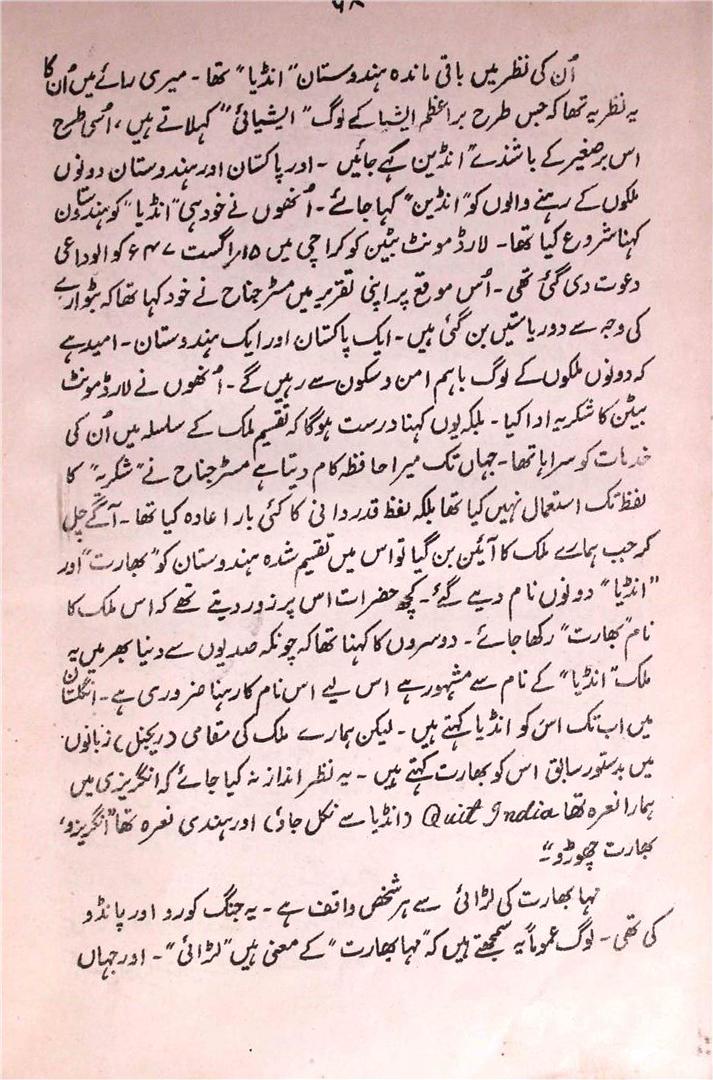 ۶۸
اُن کی نظر میں باقی ماندہ ہندوستان "انڈیا" تھا ۔ میری رائے میں اُن کا
یہ نظریہ تھا کہ جس طرح براعظم ایشیا کے لوگ "ایشیائی" کہلاتے ہیں ، اُسی طرح
اس برصغیر کے باشندے "انڈین کہے جائیں ۔ اور پاکستان اور ہندوستان دونوں
ملکوں کے رہنے والوں کو "انڈین" کہا جائے ۔ اُنھوں نے خود ہی "انڈیا" کو ہندوستان
کہنا شروع کیا تھا ۔ لارڈ مونٹ بیٹن کو کراچی میں ۱۵ر اگست ۴۷ء کو الوداعی
دعوت دی گئی تھی ۔ اُس موقع پر اپنی تقریر میں مسٹر جناح نے خود کہا تھا کہ بٹوارے
کی وجہ سے دو ریاستیں بن گئی ہیں ۔ ایک پاکستان اور ایک ہندوستان ۔ امید ہے
کہ دونوں ملکوں کے لوگ باہم امن و سکون سے رہیں گے ۔ اُنھوں نے لارڈ مونٹ
بیٹن کا شکریہ ادا کیا ۔ بلکہ یوں کہنا درست ہوگا کہ تقسیم ملک کے سلسلہ میں اُن کی
خدمات کو سراہا تھا ۔ جہاں تک میرا حافظہ کام دیتا ہے مسٹر جناح نے "شکریہ" کا
لفظ تک استعمال نہیں کیا تھا بلکہ لفظ قدردانی کا کئی بار اعادہ کیا تھا ۔ آگے چل
کر جب ہمارے ملک کا آئین بن گیا تو اس میں تقسیم شدہ ہندوستان کو "بھارت" اور
"انڈیا" دونوں نام دیے گئے ۔ کچھ حضرات اس پر زور دیتے تھے کہ اس ملک کا
نام "بھارت" رکھا جائے ۔ دوسروں کا کہنا تھا کہ چونکہ صدیوں سے دنیا بھر میں یہ
ملک "انڈیا" کے نام سے مشہور ہے اس لیے اس نام کا رہنا ضروری ہے ۔ انگلستان
میں اب تک اس کو انڈیا کہتے ہیں ۔ لیکن ہمارے ملک کی مقامی (ریجنل) زبانوں
میں بدستور سابق اس کو بھارت کہتے ہیں ۔ یہ نظر انداز نہ کیا جائے کہ انگریزی میں
ہمارا نعرہ تھا Quit India (انڈیا سے نکل جاؤ) اور ہندی نعرہ تھا "انگریزو،
بھارت چھوڑو" ۔
مہا بھارت کی لڑائی سے ہر شخص واقف ہے ۔ یہ جنگ کورو اور پانڈو
کی تھی ۔ لوگ عموماً یہ سمجھتے ہیں کہ "مہا بھارت" کے معنی ہیں "لڑائی" ۔ اور جہاں